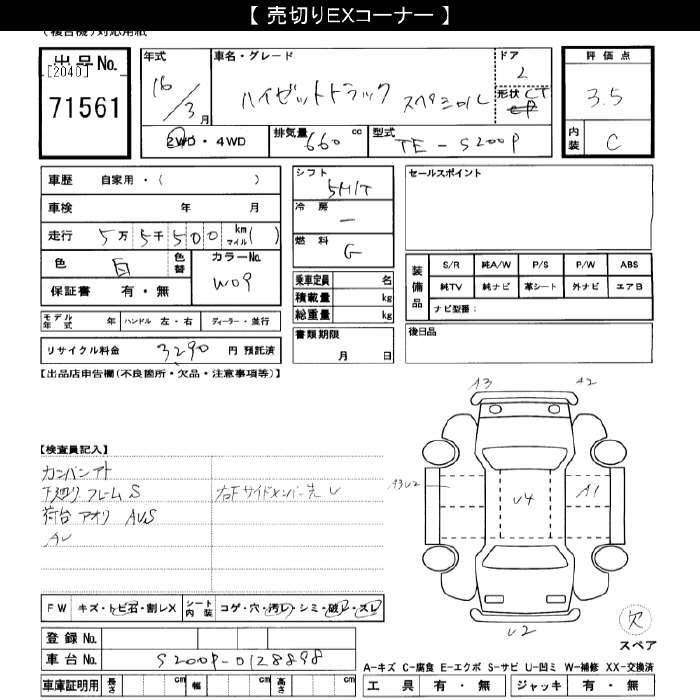 【 売切りEXコーナー 】
(複合機)対応用紙
出品No. [2040]
71561
年式 16/3月
車名・グレード ハイゼットトラック スペシャル
ドア 2
形状 CT
2WD・4WD
排気量 660 cc
型式 TE-S200P
評価点 3.5
内装 C
車歴 自家用・( )
車検 年 月
走行 5万5千500 km マイル( )
色 白 色替 カラーNo. W09
保証書 有・無
モデル年式 年 ハンドル 左・右 ディーラー・並行
リサイクル料金 3290 円 預託済
シフト 5M/T
冷房 ー
燃料 G
乗車定員 名
積載量 kg
総重量 kg
書類期限 月 日
セールスポイント
装備品 S/R 純A/W P/S P/W ABS
純TV 純ナビ 革シート 外ナビ エアB
ナビ型番:
後日品
【出品店申告欄(不良箇所・欠品・注意事項等)】
【検査員記入】
カンバンアト
下廻り フレーム S 右Fサイドメンバー先 U
荷台 アオリ AUS
AU
FW キズ・トビ石・割レX シート内装 コゲ・穴・汚レ・シミ・破レ・スレ
登録No.
車台No. S200P-0128898
車庫証明用 長さ cm 幅 cm 高さ cm
A3 A2
A3U2 U4 A1
U2
欠
スペア
A-キズ C-腐食 E-エクボ S-サビ U-凹ミ W-補修 XX-交換済
工具 有・無 ジャッキ 有・無